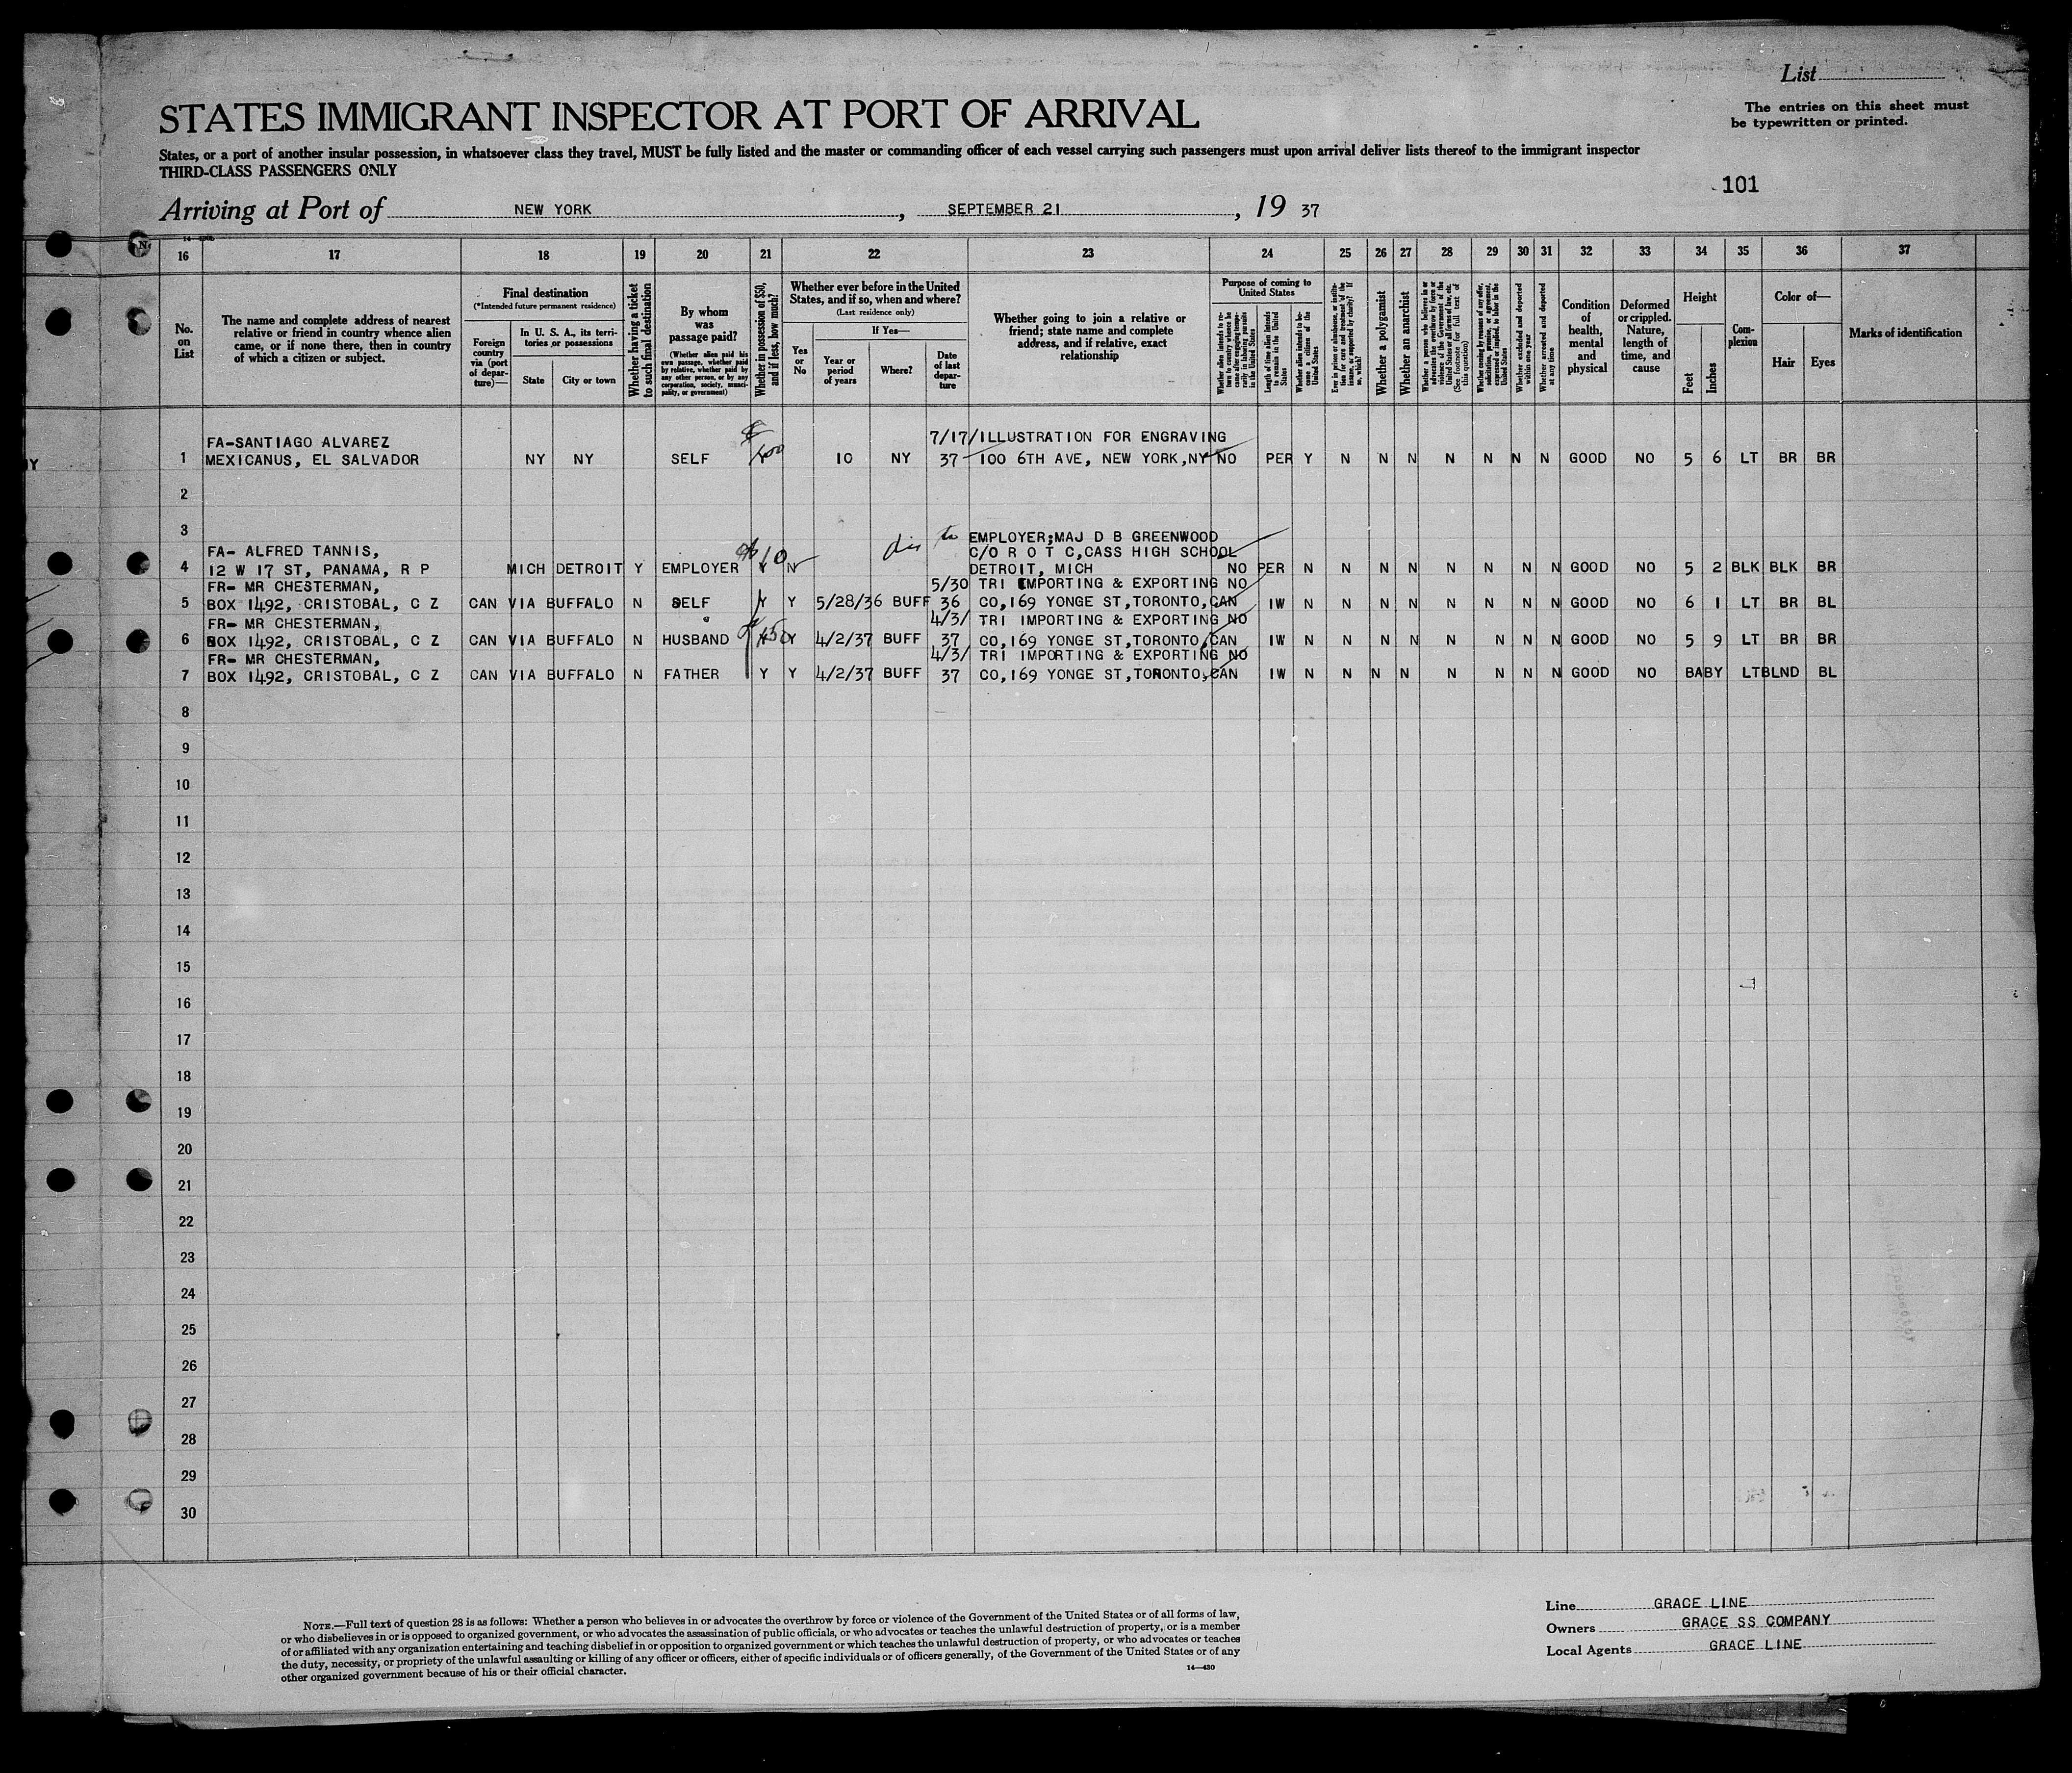 List
The entries on this sheet must
be typewritten or printed.
STATES IMMIGRANT INSPECTOR AT PORT OF ARRIVAL
States, or a port of another insular possession, in whatsoever class they travel, MUST be fully listed and the master or commanding officer of each vessel carrying such passengers must upon arrival deliver lists thereof to the immigrant inspector
THIRD-CLASS PASSENGERS ONLY
101
Arriving at Port of NEW YORK, SEPTEMBER 21, 19 37
16 17 18 19 20 21 22 23 24 25 26 27 28 29 30 31 32 33 34 35 36 37
No. on List
The name and complete address of nearest
relative or friend in country whence alien
came, or if none there, then in country
of which a citizen or subject.
Final destination
(*Intended future permanent residence)
Foreign country via (port of departure)—
In U. S. A., its territories or possessions
State
City or town
Whether having a ticket to such final destination
By whom was passage paid?
(Whether alien paid his own passage, whether paid by relative, whether paid by any other person, or by any corporation, society, municipality, or government)
Whether in possession of $50, and if less, how much?
Whether ever before in the United States, and if so, when and where?
(Last residence only)
Yes or No
If Yes—
Year or period of years
Where?
Date of last departure
Whether going to join a relative or
friend; state name and complete
address, and if relative, exact
relationship
Purpose of coming to United States
Length of time alien intends to remain in the United States
Whether alien intends to become a citizen of the United States
Whether a polygamist
Whether an anarchist
Whether excluded and deported within one year
Whether arrested and deported at any time
Condition of health, mental and physical
Deformed or crippled. Nature, length of time, and cause
Height
Feet
Inches
Complexion
Color of—
Hair
Eyes
Marks of identification
FA-SANTIAGO ALVAREZ 7/17/ ILLUSTRATION FOR ENGRAVING
1 MEXICANUS, EL SALVADOR NY NY SELF 10 NY 37 100 6TH AVE, NEW YORK, NY NO PER Y N N N N N N N GOOD NO 5 6 LT BR BR
2
3
EMPLOYER;MAJ D B GREENWOOD
FA- ALFRED TANNIS, C/O R O T C,CASS HIGH SCHOOL
4 12 W 17 ST, PANAMA, R P MICH DETROIT Y EMPLOYER Y 10 N DETROIT, MICH NO PER N N N N N N N N GOOD NO 5 2 BLK BLK BR
FR- MR CHESTERMAN, 5/30 TRI IMPORTING & EXPORTING NO
5 BOX 1492, CRISTOBAL, C Z CAN VIA BUFFALO N SELF Y Y 5/28/36 BUFF 36 CO,169 YONGE ST,TORONTO,CAN IW N N N N N N N N GOOD NO 6 1 LT BR BL
FR- MR CHESTERMAN, 4/3/ TRI IMPORTING & EXPORTING NO
6 BOX 1492, CRISTOBAL, C Z CAN VIA BUFFALO N HUSBAND Y 4/2/37 BUFF 37 CO,169 YONGE ST,TORONTO,CAN IW N N N N N N N N GOOD NO 5 9 LT BR BR
FR- MR CHESTERMAN, 4/3/ TRI IMPORTING & EXPORTING NO
7 BOX 1492, CRISTOBAL, C Z CAN VIA BUFFALO N FATHER Y Y 4/2/37 BUFF 37 CO,169 YONGE ST,TORONTO,CAN IW N N N N N N N N GOOD NO BABY LT BLND BL
8
9
10
11
12
13
14
15
16
17
18
19
20
21
22
23
24
25
26
27
28
29
30
NOTE.—Full text of question 28 is as follows: Whether a person who believes in or advocates the overthrow by force or violence of the Government of the United States or of all forms of law,
or who disbelieves in or is opposed to organized government, or who advocates the assassination of public officials, or who advocates or teaches the unlawful destruction of property, or is a member
of or affiliated with any organization entertaining and teaching disbelief in or opposition to organized government or which teaches the unlawful destruction of property, or who advocates or teaches
the duty, necessity, or propriety of the unlawful assaulting or killing of any officer or officers, either of specific individuals or of officers generally, of the Government of the United States or of any
other organized government because of his or their official character.
14—430
Line GRACE LINE
Owners GRACE SS COMPANY
Local Agents GRACE LINE